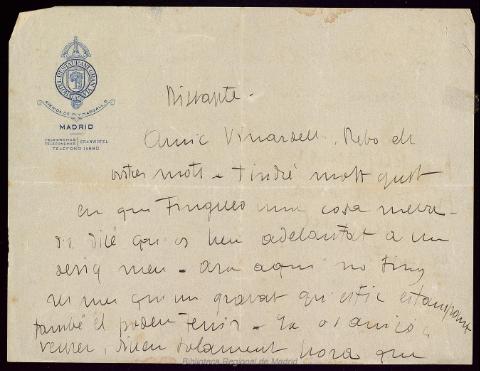 MADRID
Dissapte -
Amic Vinardell. Rebo els
vostres mots - Tindré molt gust
en que Tingueu una cosa meva -
dir que os heu adelantat a un
desig meu - Ara aquí no tinc
res més que un gravat qu'estic estampant
també el podeu Tenir - Ja os aniré a
veurer, diieu solament hora que
Biblioteca Regional de Madrid